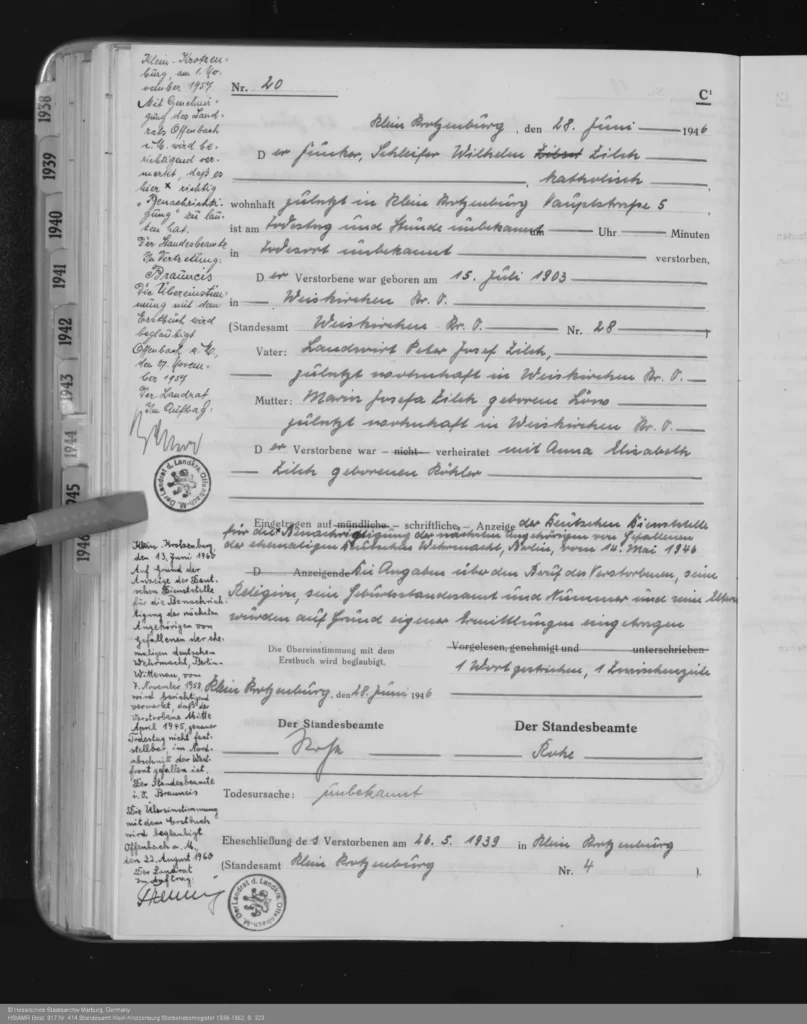 1938
1939
1940
1941
1942
1943
1944
1945
1946
Klein-Krotzen-
burg, am 1. No-
vember 1957
Mit Genehmi-
gung des Land-
rats Offenbach
a. M. wird be-
richtigend ver-
merkt, daß es
hier x richtig
"Benachrichti-
gung" zu lau-
ten hat.
Der Standesbeamte
In Vertretung:
Brauneis
Die Übereinstim-
mung mit dem
Erstbuch wird
beglaubigt
Offenbach a. M.,
den 27. Novem-
ber 1957
Der Landrat
Im Auftrag:
Der Landrat d. Landkrs. Offenbach-M.
Klein-Krotzenburg,
den 13. Juni 1960
Auf Grund der
Anzeige der Deut-
schen Dienststelle
für die Benachrich-
tigung der nächsten
Angehörigen von
Gefallenen der ehe-
maligen deutschen
Wehrmacht, Berlin-
Wittenau, vom
7. November 1958,
wird berichtigend
vermerkt, daß der
Verstorbene Mitte
April 1945, genauer
Todestag nicht fest-
stellbar, im Nord-
abschnitt der West-
front gefallen ist.
Der Standesbeamte
i. V. Brauneis
Die Übereinstimmung
mit dem Erstbuch
wird beglaubigt
Offenbach a. M.,
den 23. August 1960
Der Landrat
Im Auftrag:
Der Landrat d. Landkrs. Offenbach-M.
Nr. 20 C¹
Klein Krotzenburg, den 28. Juni 1946
Der Funker, Schleifer Wilhelm Zilch
katholisch,
wohnhaft zuletzt in Klein Krotzenburg Hauptstraße 5,
ist am Todestag und Stunde unbekannt um Uhr Minuten
in Todesort unbekannt verstorben,
Der Verstorbene war geboren am 15. Juli 1903
in Weiskirchen Kr. O.
(Standesamt Weiskirchen Kr. O. Nr. 28)
Vater: Landwirt Peter Josef Zilch,
zuletzt wohnhaft in Weiskirchen Kr. O.
Mutter: Maria Josefa Zilch geborene Löw
zuletzt wohnhaft in Weiskirchen Kr. O.
Der Verstorbene war – nicht – verheiratet mit Anna Elisabeth
Zilch geborenen Köhler
Eingetragen auf mündliche – schriftliche – Anzeige der Deutschen Dienststelle
für die Benachrichtigung der nächsten Angehörigen von Gefallenen
der ehemaligen Deutschen Wehrmacht, Berlin, vom 14. Mai 1946
D Anzeigende Die Angaben über den Beruf des Verstorbenen, seine
Religion, sein Geburtsstandesamt und Nummer und seine Eltern
wurden auf Grund eigener Ermittlungen eingetragen
Die Übereinstimmung mit dem
Erstbuch wird beglaubigt.
Vorgelesen, genehmigt und unterschrieben
1 Wort gestrichen, 1 Zwischenzeile
Klein Krotzenburg, den 28. Juni 1946
Der Standesbeamte
Der Standesbeamte
Todesursache: unbekannt
Eheschließung des Verstorbenen am 26. 5. 1939 in Klein Krotzenburg
(Standesamt Klein Krotzenburg Nr. 4 ).
© Hessisches Staatsarchiv Marburg, Germany
HStAMR Best. 917 Nr. 414 Standesamt Klein-Krotzenburg Sterbenebenregister 1938-1952, S. 323